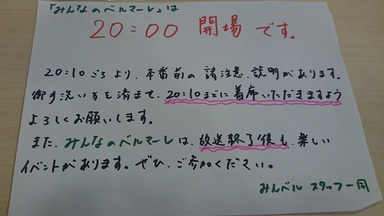 「みんなのベルマーレ」は
20:00 開場です。
20:10ごろより、本番前の諸注意、説明があります。
御手洗い等を済ませ、20:10までに着席いただきますよう
よろしくお願いします。
また、みんなのベルマーレは、放送終了後も、楽しい
イベントがあります。ぜひ、ご参加ください。
みんベル スタッフ一同